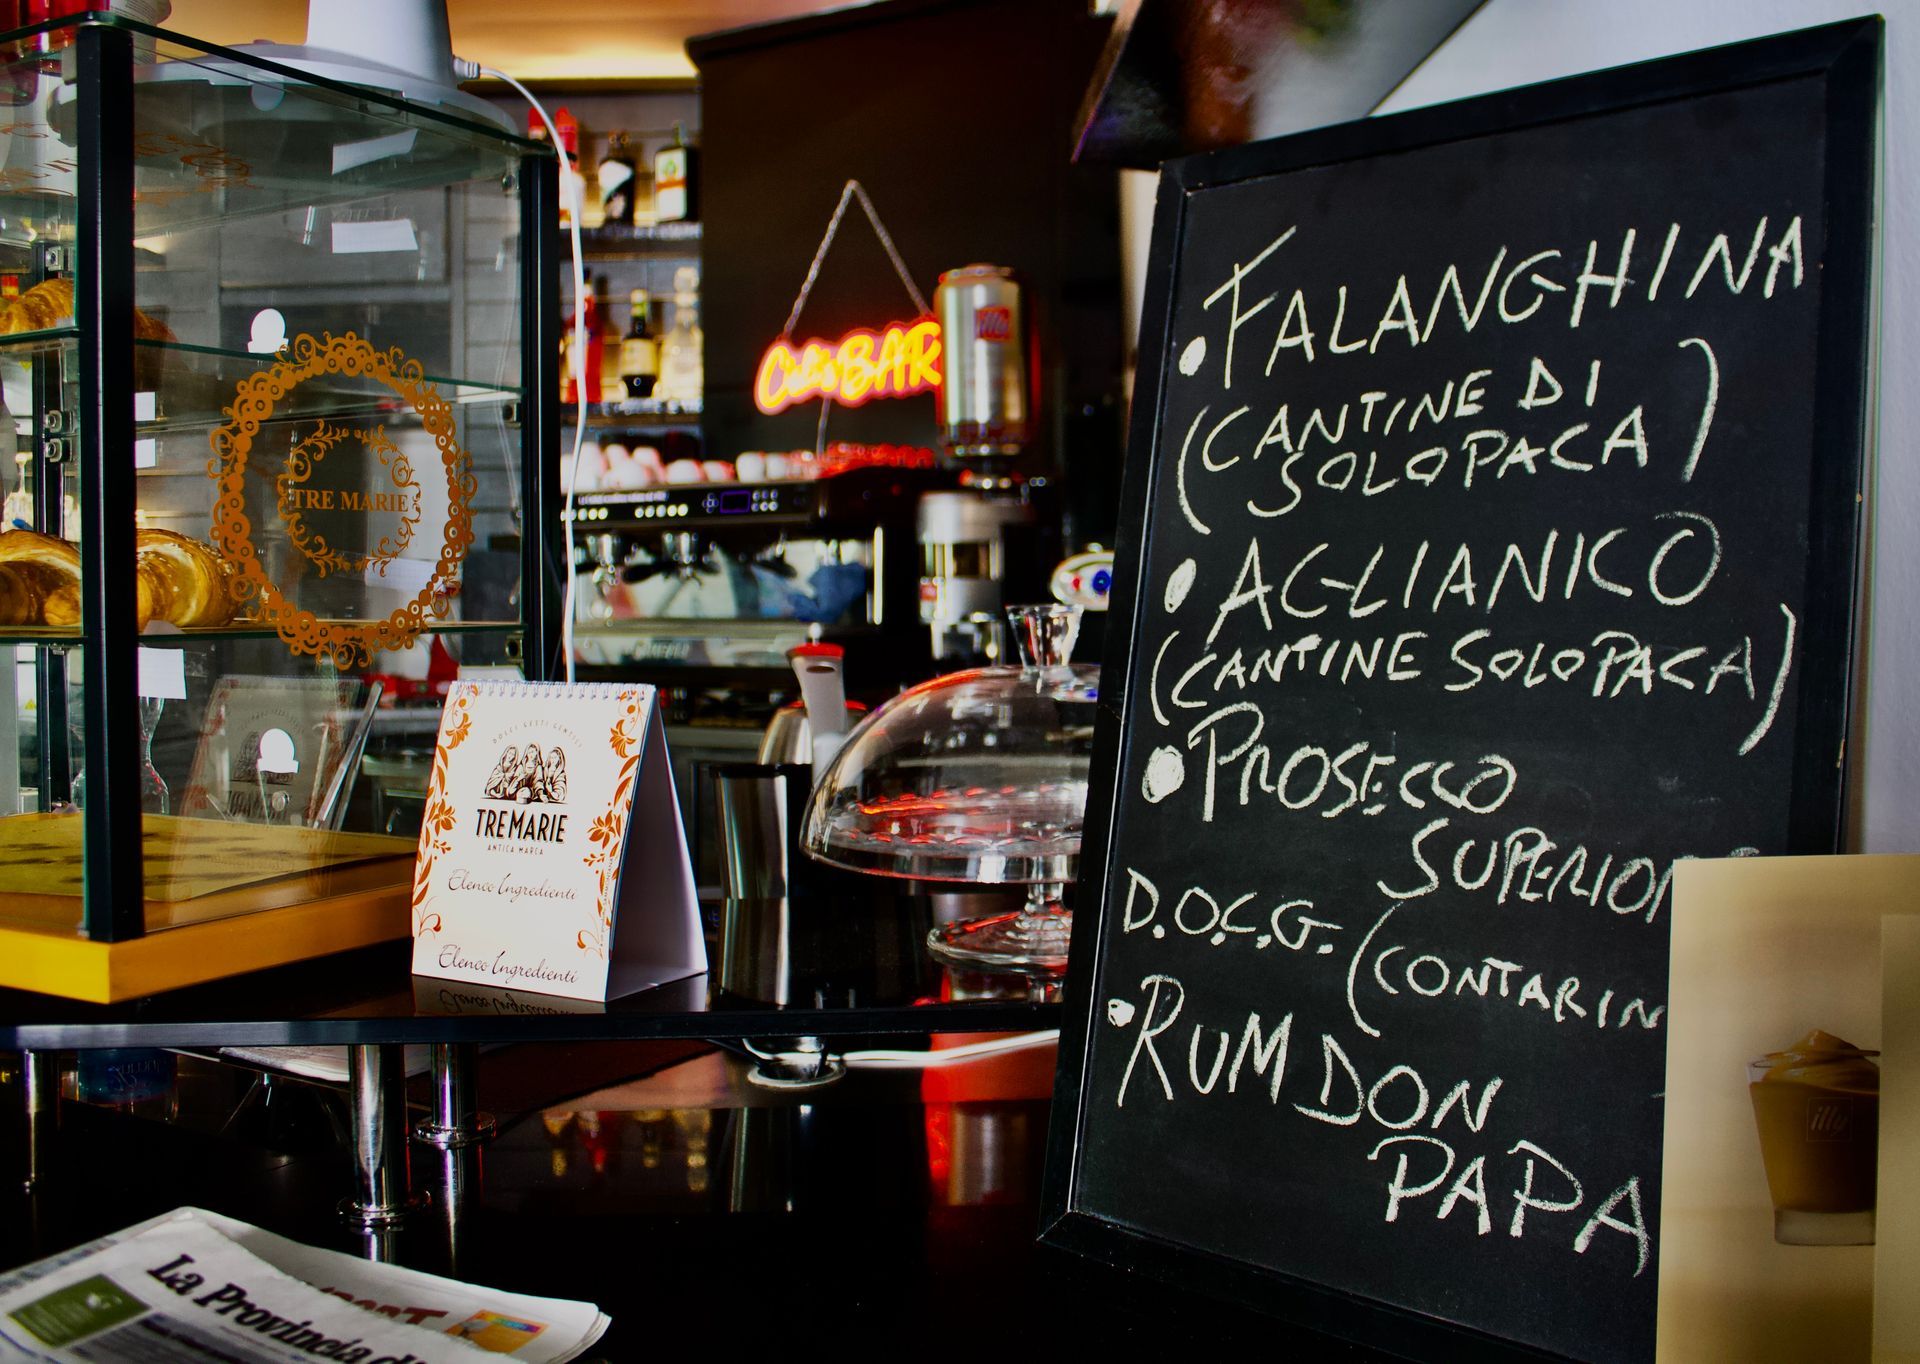 • FALANGHINA
(CANTINE DI
SOLOPACA)
• AGLIANICO
(CANTINE SOLOPACA)
• PROSECCO
SUPERIOR
D.O.C.G. (CONTARIN
• RUM DON
PAPA
TRE MARIE
DOLCI GESTI GENTILI
TREMARIE
ANTICA MARCA
Elenco Ingredienti
Elenco Ingredienti
BAR
illy
illy
La Provincia
SPORT